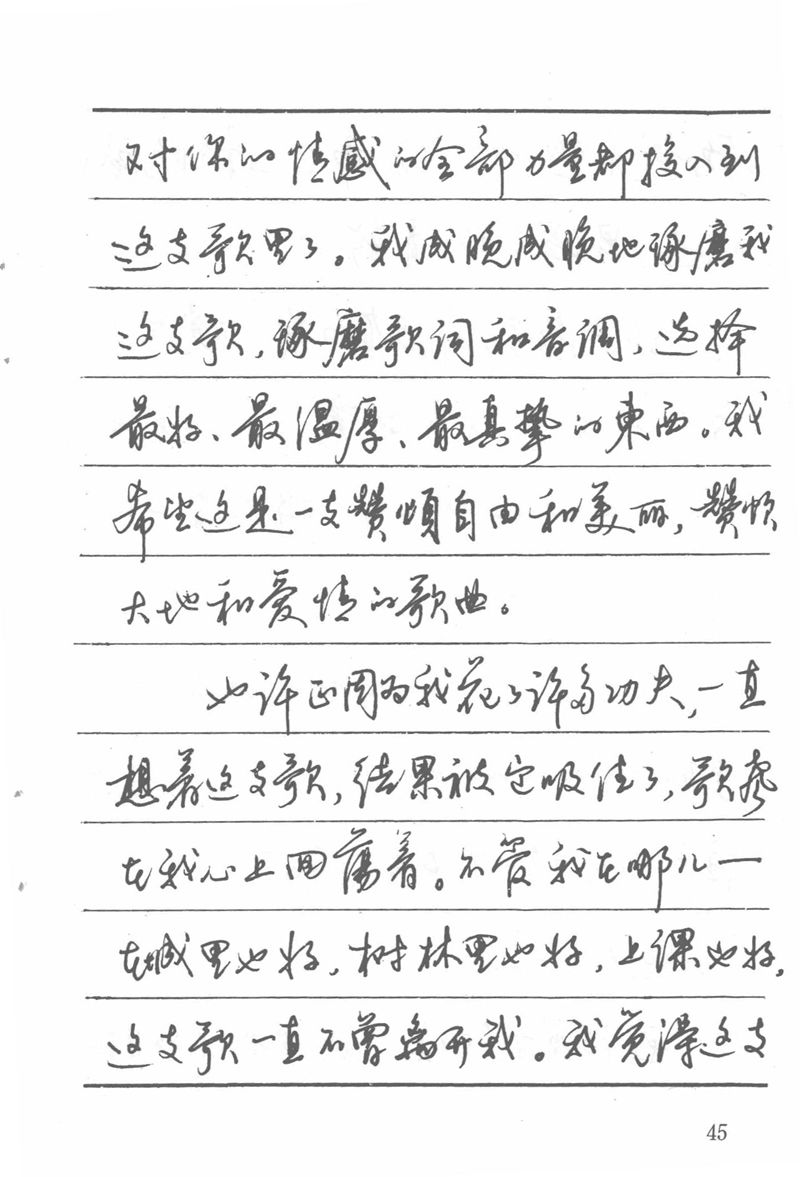 对你的情感的全部力量都投入到
这支歌里了。我成晚成晚地琢磨我
这支歌,琢磨歌词和音调,选择
最好、最温厚、最真摯的東西。我
希望这是一支赞頌自由和美丽,赞頌
大地和爱情的歌曲。
也许正因为我花了许多功夫,一直
想着这支歌,结果被它吸住了,歌声
在我心上回荡着。不管我在哪儿一
在城里也好,树林里也好,上课也好,
这支歌一直不曾离开我。我觉得这支
45